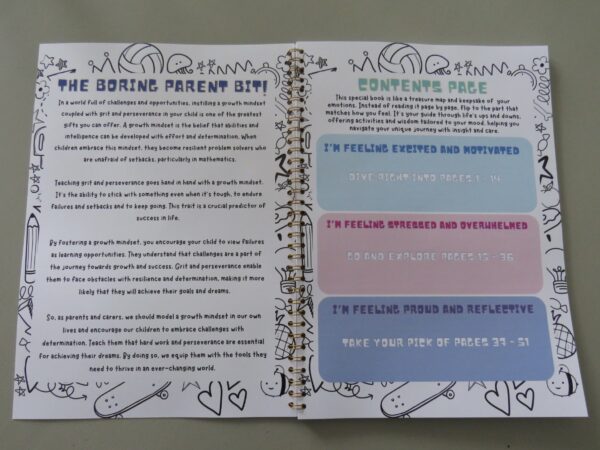 THE BORING PARENT BIT!
In a world full of challenges and opportunities, instilling a growth mindset
coupled with grit and perseverance in your child is one of the greatest
gifts you can offer. A growth mindset is the belief that abilities and
intelligence can be developed with effort and determination. When
children embrace this mindset, they become resilient problem solvers who
are unafraid of setbacks, particularly in mathematics.
Teaching grit and perseverance goes hand in hand with a growth mindset.
It's the ability to stick with something even when it's tough, to endure
failures and setbacks and to keep going. This trait is a crucial predictor of
success in life.
By fostering a growth mindset, you encourage your child to view failures
as learning opportunities. They understand that challenges are a part of
the journey towards growth and success. Grit and perseverance enable
them to face obstacles with resilience and determination, making it more
likely that they will achieve their goals and dreams.
So, as parents and carers, we should model a growth mindset in our own
lives and encourage our children to embrace challenges with
determination. Teach them that hard work and perseverance are essential
for achieving their dreams. By doing so, we equip them with the tools they
need to thrive in an ever-changing world.
CONTENTS PAGE
This special book is like a treasure map and keepsake of your
emotions. Instead of reading it page by page, flip to the part that
matches how you feel. It's your guide through life's ups and downs,
offering activities and wisdom tailored to your mood, helping you
navigate your unique journey with insight and care.
I'M FEELING EXCITED AND MOTIVATED
DIVE RIGHT INTO PAGES 1 - 14
I'M FEELING STRESSED AND OVERWHELMED
GO AND EXPLORE PAGES 15 - 36
I'M FEELING PROUD AND REFLECTIVE
TAKE YOUR PICK OF PAGES 37 - 51